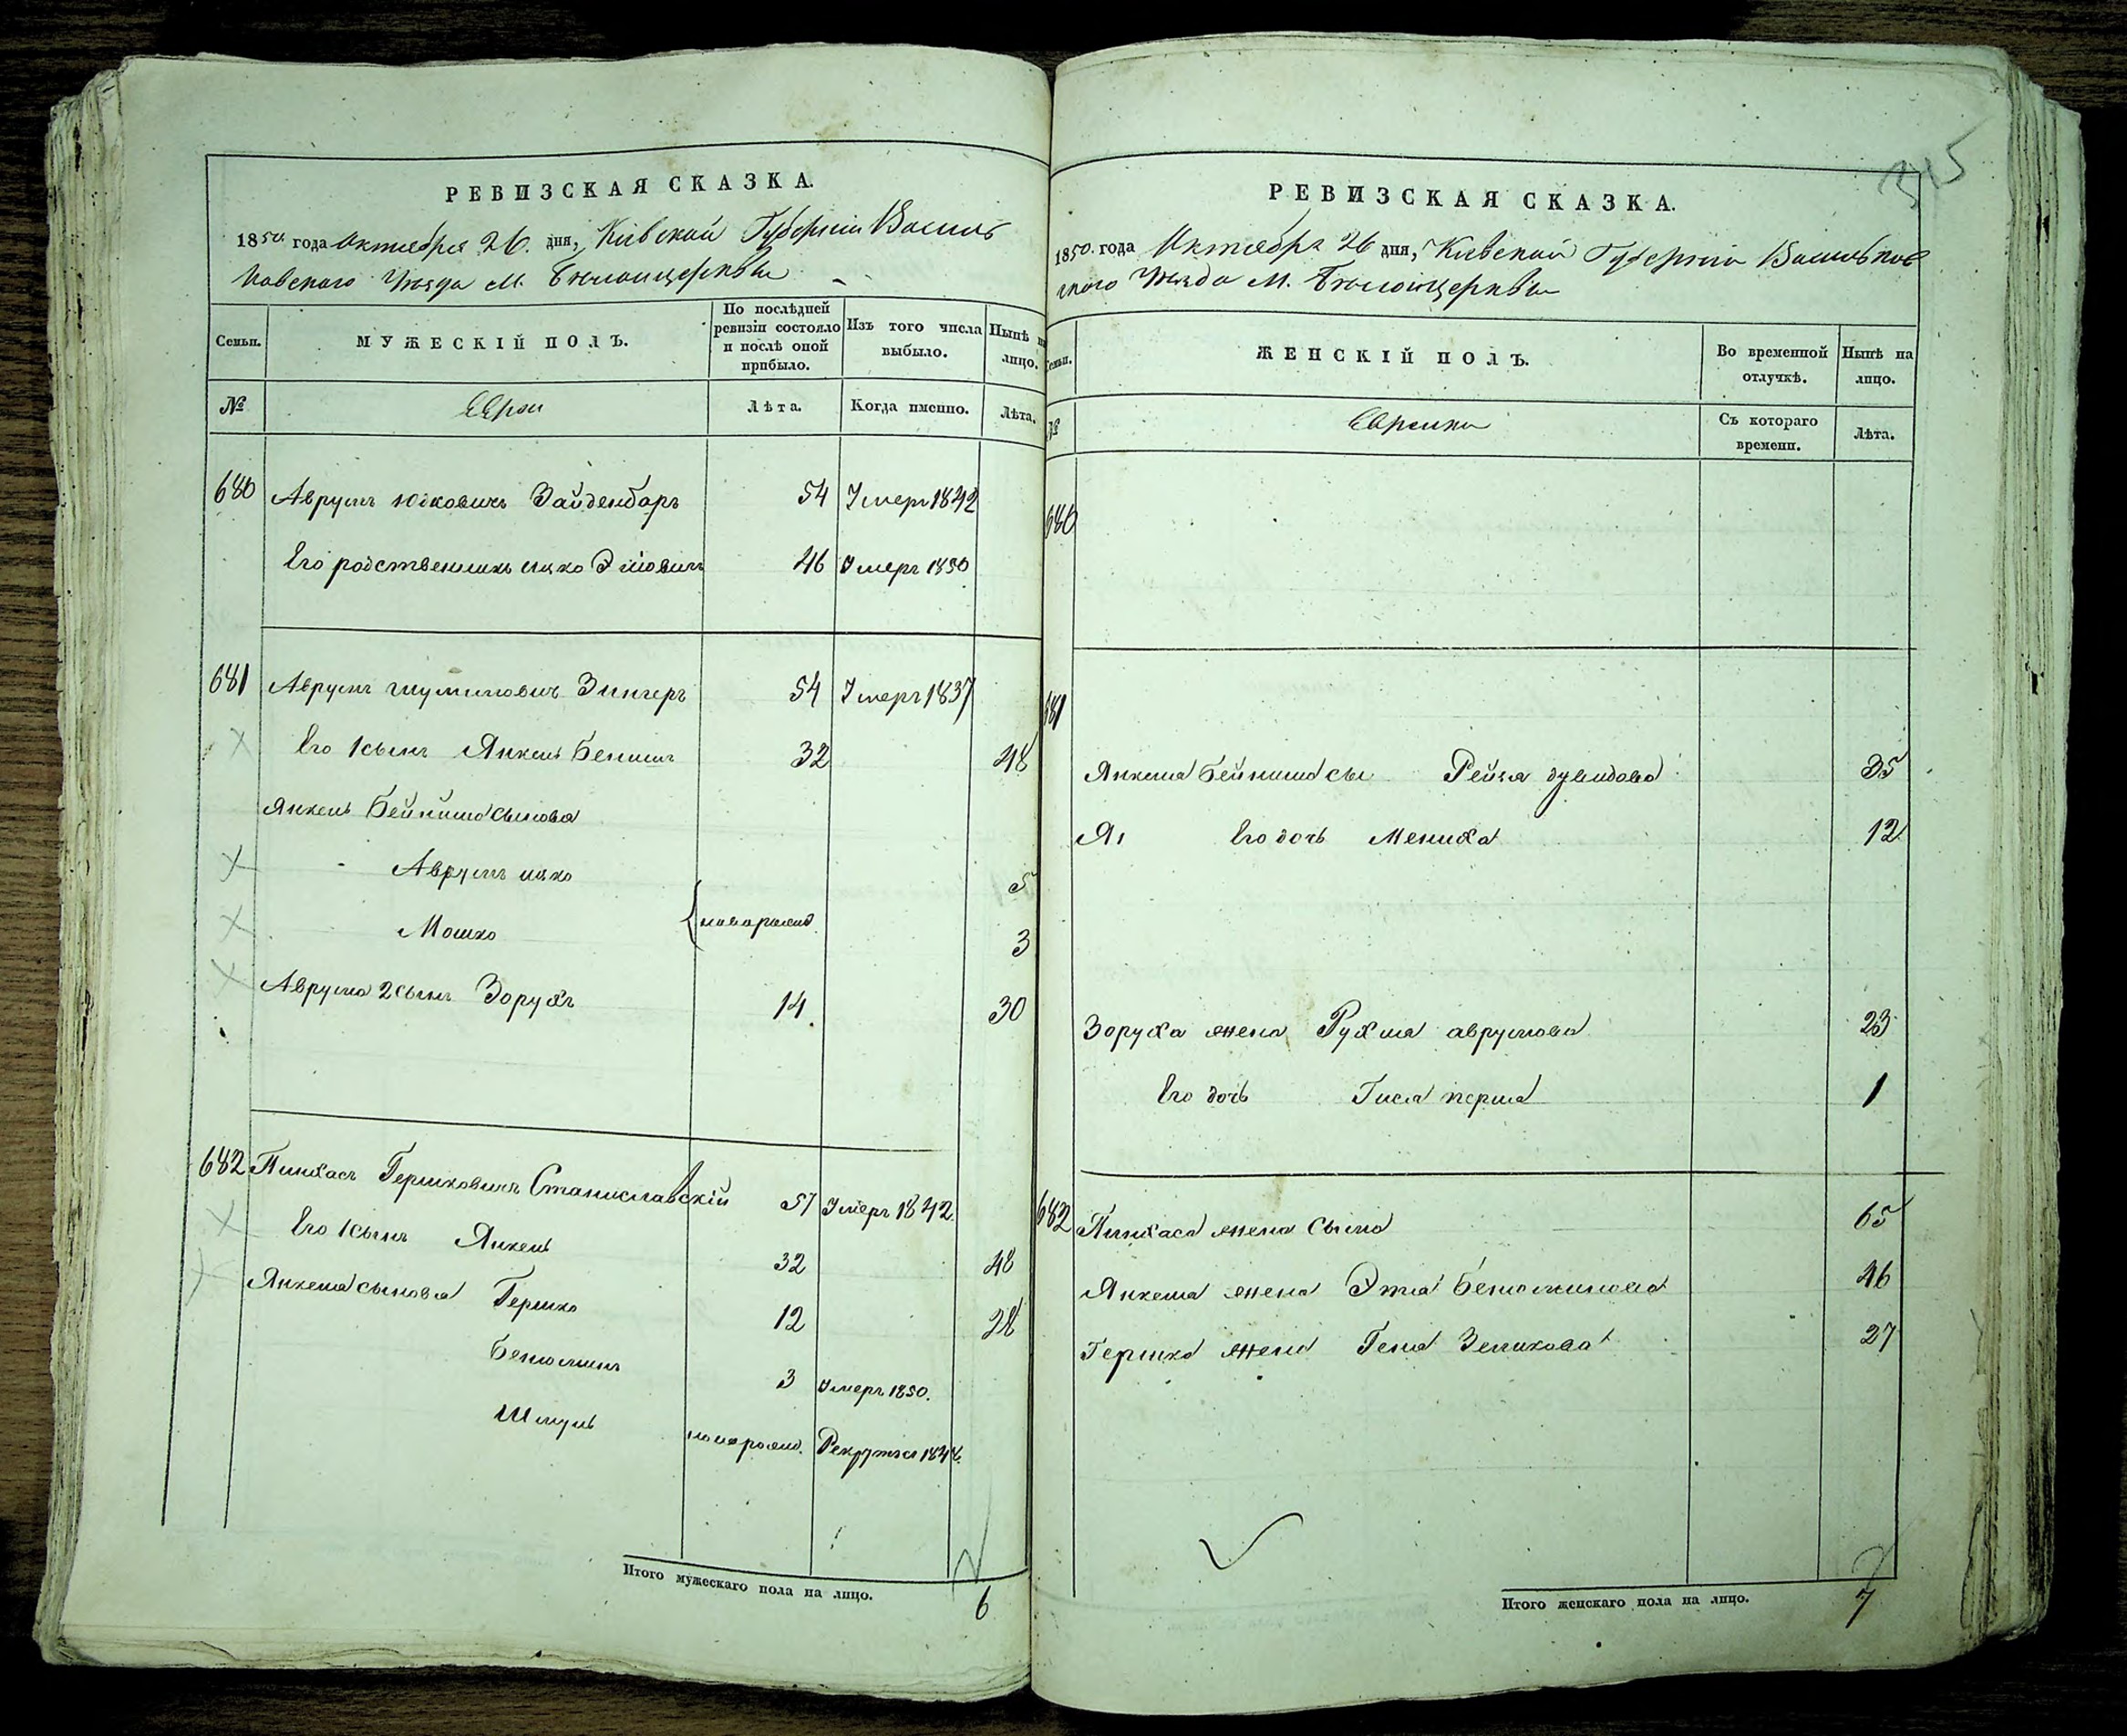 РЕВИЗСКАЯ СКАЗКА.
1850 года Октября 26. дня, Кіевской Губерніи Василь
ковскаго Уѣзда М. Бѣлоицеркви
Семьи.
МУЖЕСКІЙ ПОЛЪ.
По послѣдней ревизіи состояло и послѣ оной прибыло.
Изъ того числа выбыло.
Нынѣ на лицо.
№
Евреи
Лѣта.
Когда именно.
Лѣта.
680 Аврумъ Юсковичъ Зайденбаръ 54 Умеръ 1842
Его родственникъ ицко 46 Умеръ 1850
681 Аврумъ Зингеръ 54 Умеръ 1837
Его 1 сынъ Янкель Бенишъ 32 48
Янкель Бейниша сыновья
Аврумъ ицко 5
Мошко новорожд. 3
Аврума 2 сынъ Зорухъ 14. 30
682 Пинхасъ Гершковичъ Станиславскій 51 Умеръ 1842.
Его 1 сынъ Янкель 32 48
Янкеля сыновья Гершко 12 28
Бенюминъ 3 Умеръ 1850.
Шмуль новорожд. 
Итого мужескаго пола на лицо. 6
315
РЕВИЗСКАЯ СКАЗКА.
1850. года Октября 26 дня, Кіевской Губерніи Васильков
скаго Уѣзда М. Бѣлоицеркви
Семьи.
ЖЕНСКІЙ ПОЛЪ.
Во временной отлучкѣ.
Нынѣ на лицо.
№
Еврейки
Съ котораго времени.
Лѣта.
680
681
Янкеля Бейниша Рейзя 35
Его дочь Мениха 12
Заруха жена Рухля аврумова 23
Его дочь Гися перля 1
682 Пинхаса жена Сима 65
Янкеля жена Этя Бенюминова 46
Гершка жена Геня Зеликова 27
Итого женскаго пола на лицо. 7